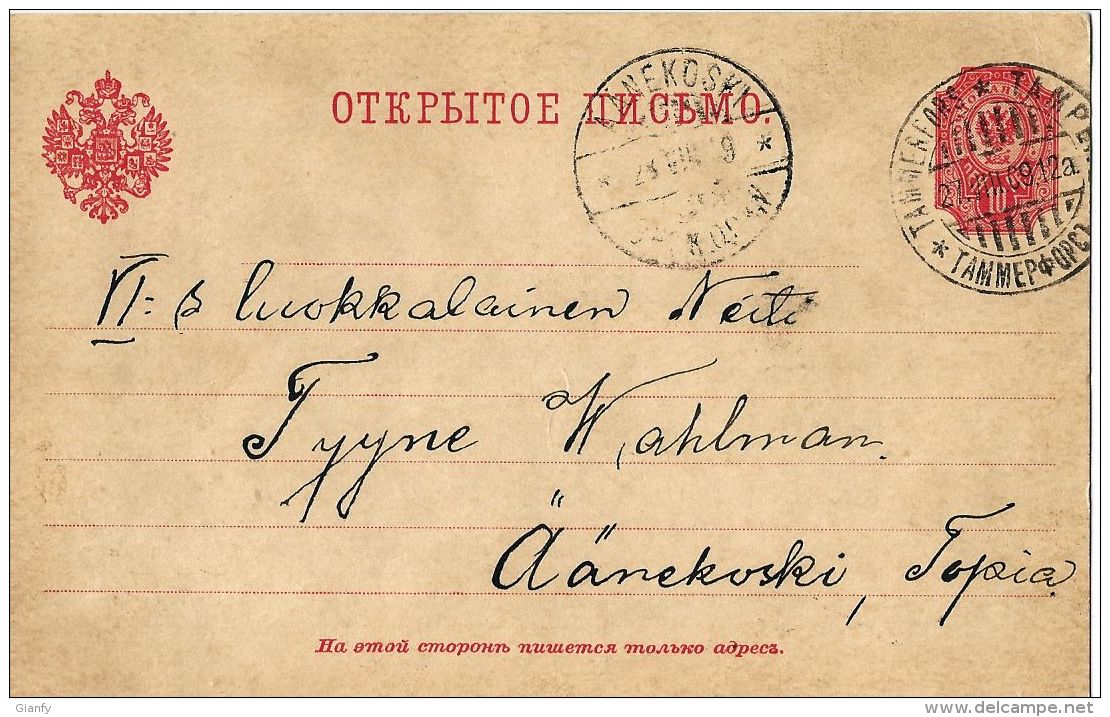 ОТКРЫТОЕ ПИСЬМО.
ÄÄNEKOSKI
TAMMERFORS * TAMPE
27.VIII.09.12a
* ТАММЕРФОРСЪ
VI:s luokkalainen Neiti
Tyyne Wahlman.
Äänekoski, Topia.
На этой сторонѣ пишется только адресъ.
Gianfy
www.delcampe.net